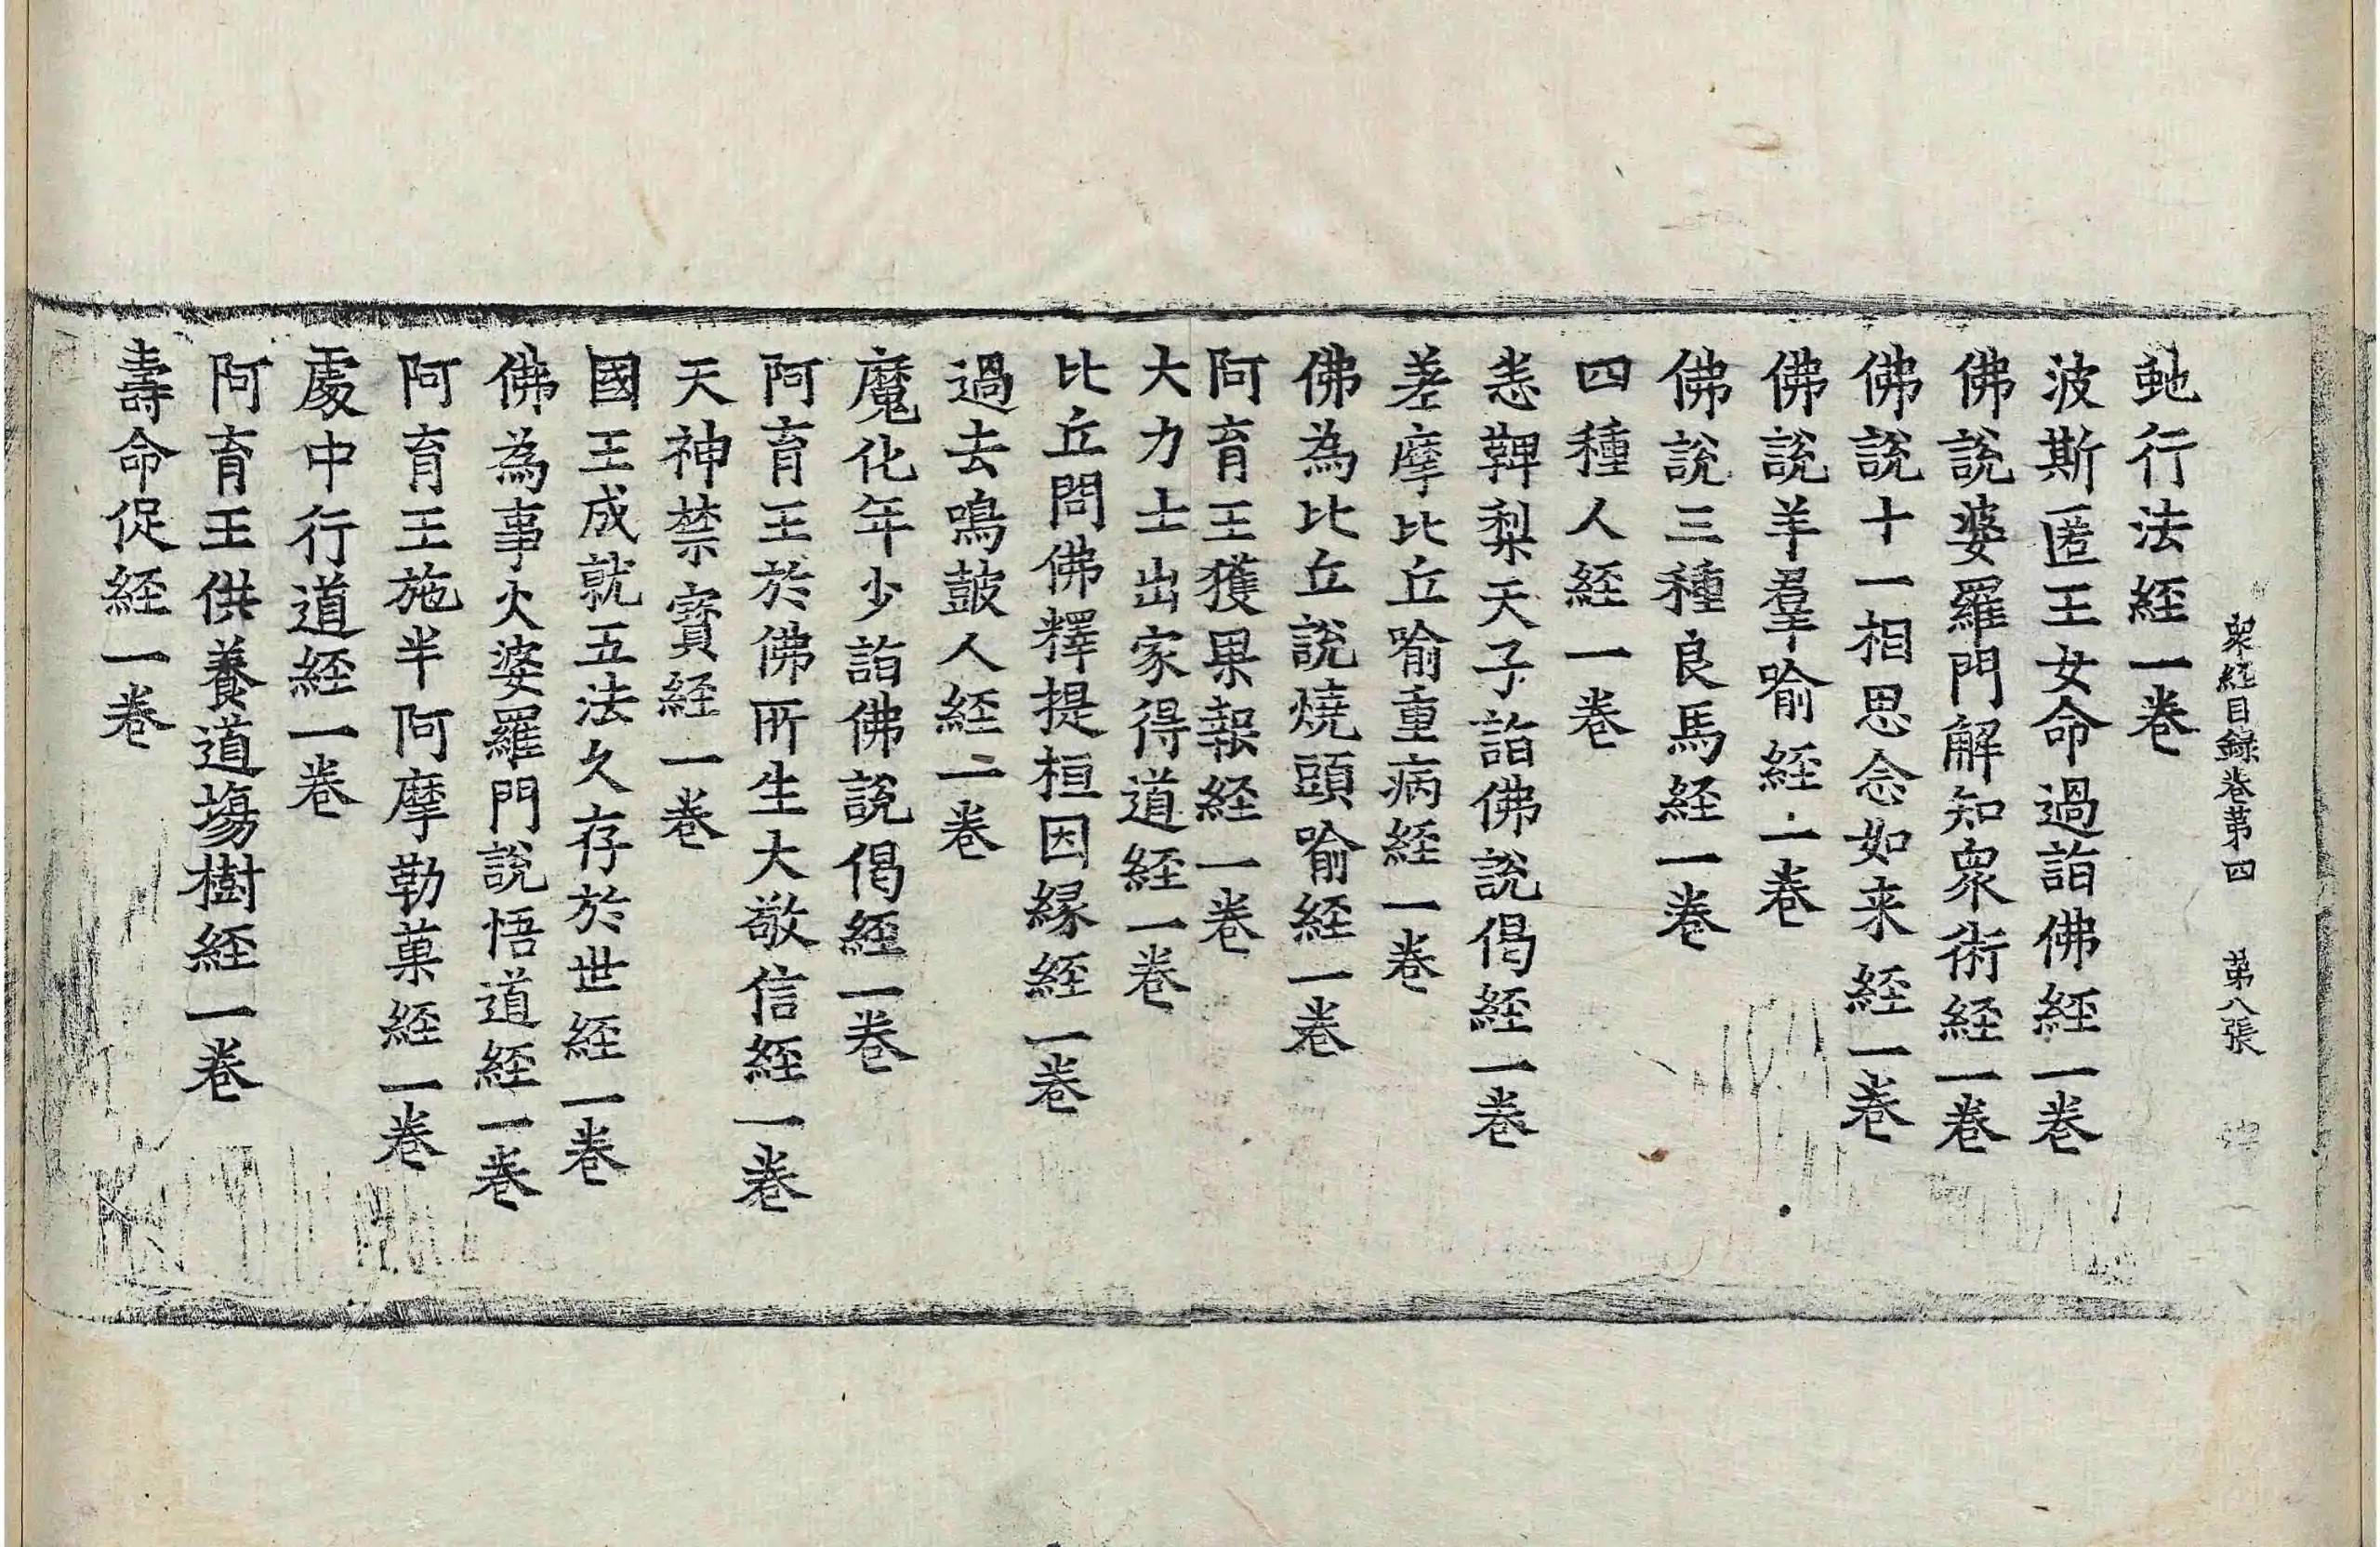 衆經目録卷第四 第八張
虵行法經一卷
波斯匿王女命過詣佛經一卷
佛說婆羅門解知衆術經一卷
佛說十一相思念如来經一卷
佛說羊羣喻經一卷
佛說三種良馬經一卷
四種人經一卷
恙鞞梨天子詣佛說偈經一卷
差摩比丘喻重病經一卷
佛為比丘說燒頭喻經一卷
阿育王獲果報經一卷
大力士出家得道經一卷
比丘問佛釋提桓因縁經一卷
過去鳴皷人經一卷
魔化年少詣佛說偈經一卷
阿育王於佛所生大敬信經一卷
天神禁寶經一卷
國王成就五法久存於世經一卷
佛為事火婆羅門說悟道經一卷
阿育王施半阿摩勒菓經一卷
處中行道經一卷
阿育王供養道塲樹經一卷
壽命促經一卷